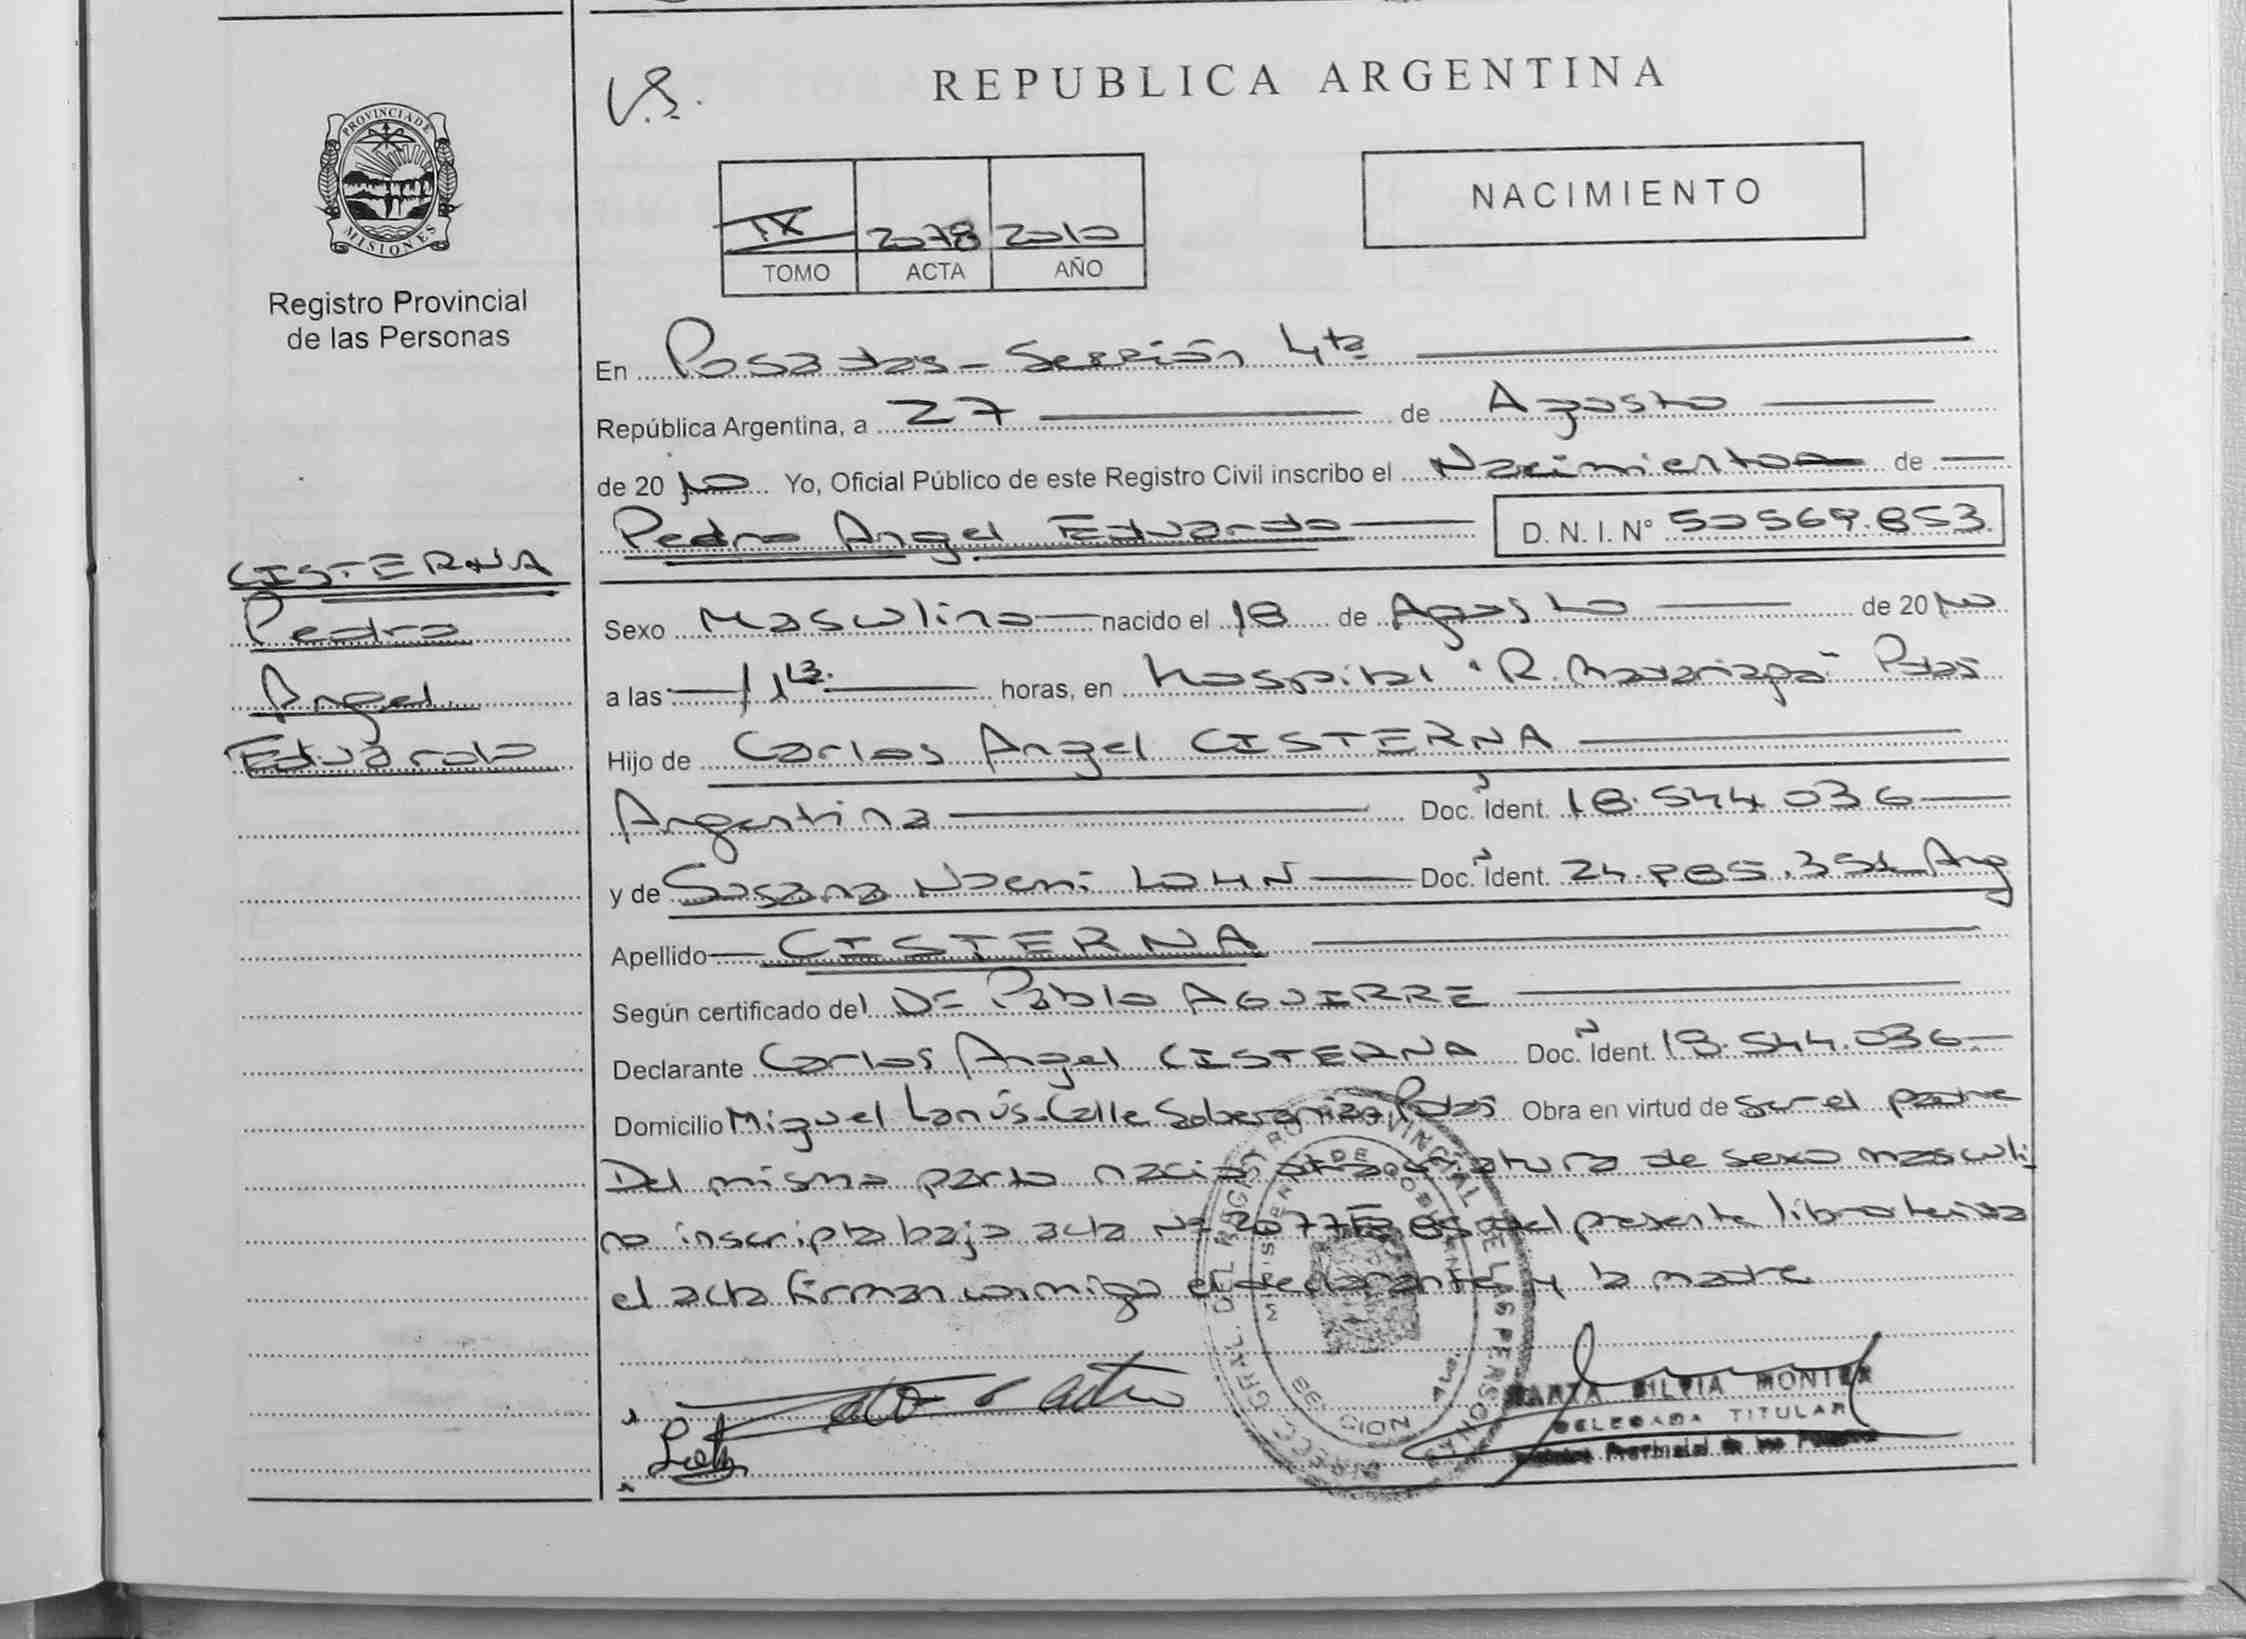 REPUBLICA ARGENTINA
PROVINCIA DE
MISIONES
Registro Provincial
de las Personas
NACIMIENTO
IX 2078 2010
TOMO ACTA AÑO
En Posadas - Sección 4ta
República Argentina, a 27 de Agosto
de 2010 Yo, Oficial Público de este Registro Civil inscribo el Nacimiento de
Pedro Angel Eduardo D. N. I. N° 50569.853.
CISTERNA
Pedro
Angel
Eduardo
Sexo Masculino nacido el 18 de Agosto de 2010
a las 1 13. horas, en Hospital "R. Madariaga" Pdas
Hijo de Carlos Angel CISTERNA
Argentina Doc. Ident. 18.544.036
y de Susana Noemi Doc. Ident. Arg
Apellido CISTERNA
Según certificado del Dr Pablo AGUIRRE
Declarante Carlos Angel CISTERNA Doc. Ident. 18.544.036
Domicilio Miguel Lanús - Calle Soberania Pdas Obra en virtud de ser el padre
Del mismo parto nació otra criatura de sexo masculi
no inscripta bajo acta Nº 2077 Fº 85 del presente libro leida
el acta firman conmigo el declarante y la madre
SILVIA
DELEGADA TITULAR